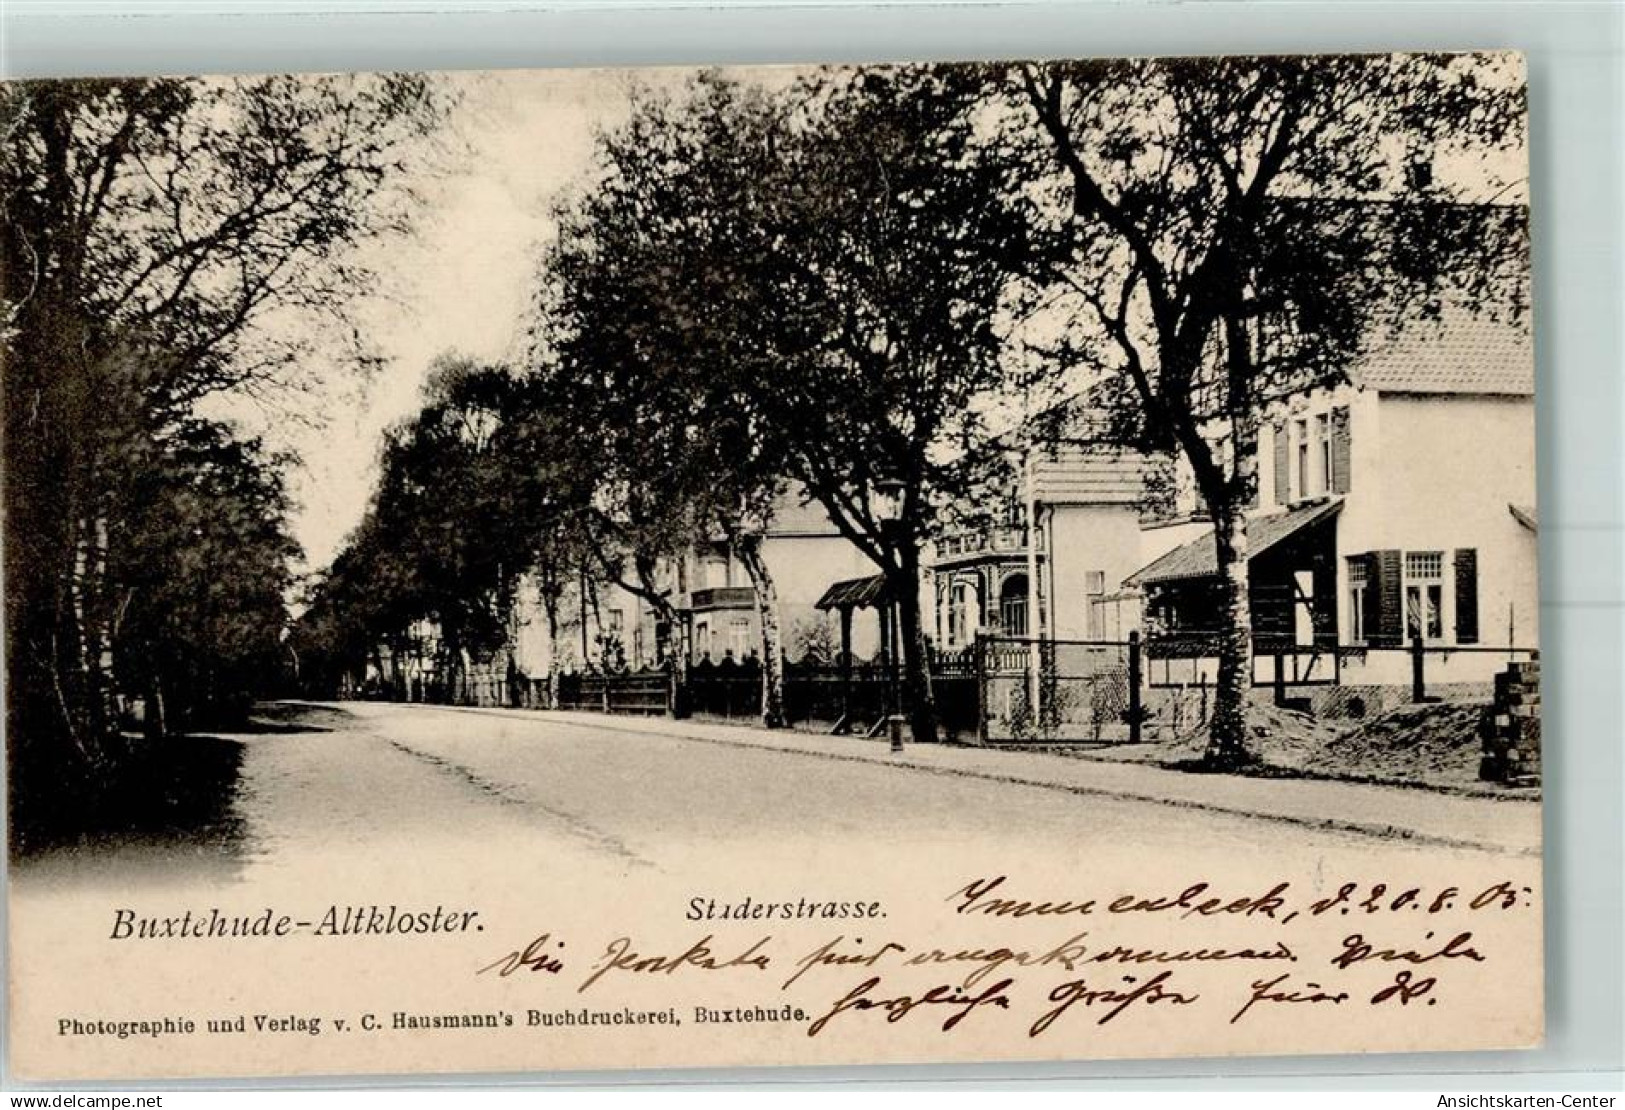 Buxtehude-Altkloster.
Staderstrasse.
Immenbeck, d. 20. 8. 05.
Die Pakete sind angekommen. Viele
herzliche Grüße
Photographie und Verlag v. C. Hausmann's Buchdruckerei, Buxtehude.
www.delcampe.net/kartenhandel
Ansichtskarten-Center